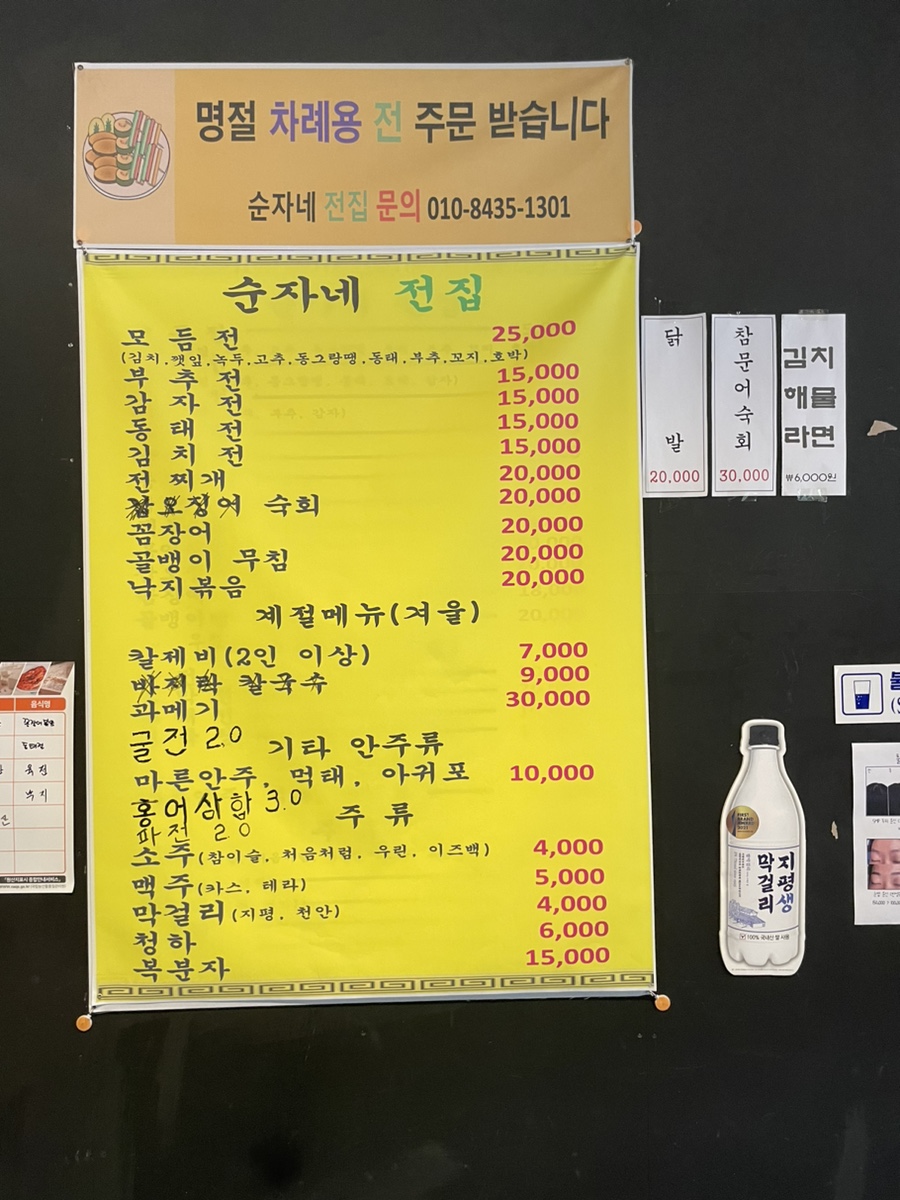 명절 차례용 전 주문 받습니다
순자네 전집 문의 010-8435-1301
순자네 전집
모듬전 25,000
(김치,깻잎,녹두,고추,동그랑땡,동태,부추,꼬지,호박)
부추전 15,000
감자전 15,000
동태전 15,000
김치전 15,000
전찌개 20,000
숙회 20,000
꼼장어 20,000
골뱅이 무침 20,000
낙지볶음 20,000
계절메뉴(겨울)
칼제비(2인 이상) 7,000
바지락 칼국수 9,000
과메기 30,000
굴전 2.0
기타 안주류
마른안주, 먹태, 아귀포 10,000
홍어삼합 3.0
파전 2.0
주류
소주(참이슬, 처음처럼, 우린, 이즈백) 4,000
맥주(카스, 테라) 5,000
막걸리(지평, 천안) 4,000
청하 6,000
복분자 15,000
닭발
20,000
참문어숙회
30,000
김치
해물
라면
₩6,000원
지평생
막걸리
100% 국내산 쌀 사용
음식명
육전
낙지